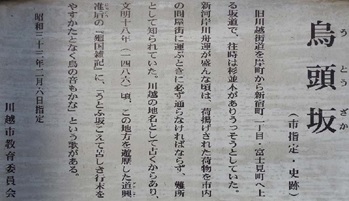 う とう ざか
烏頭坂
（市指定・史跡）
旧川越街道を岸町から新宿町一丁目・富士見町へ上
る坂道で、往時は杉並木がありうっそうとしていた。
新河岸川舟運が盛んな頃は、荷揚げされた荷物を市内
の問屋街に運ぶときに必ず通らなければならず、難所
として知られていた。川越の地名として古くからあり、
文明十八年（一四八六）頃、この地方を遊歴した道興
准后の『廻国雑記』に、「うとふ坂こえて苦しき行末を
やすかたとなく鳥の音もかな」という歌がある。
昭和三十三年三月六日指定
川越市教育委員会